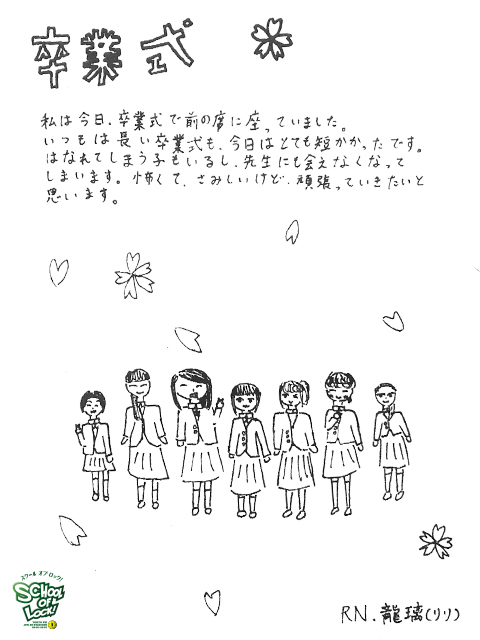 卒業式
私は今日、卒業式で前の席に座っていました。
いつもは長い卒業式も、今日はとても短かかったです。
はなれてしまう子もいるし、先生にも会えなくなって
しまいます。怖くて、さみしいけど、頑張っていきたいと
思います。
スクール オブ ロック!
SCHOOL
OF
LOCK!
RN.龍璃(リリ)